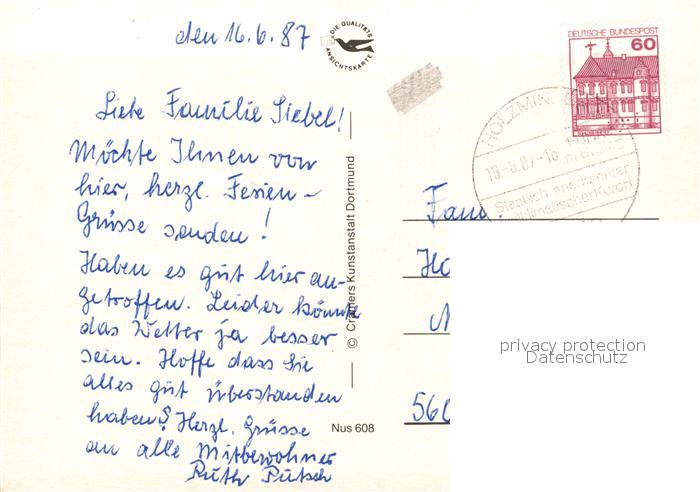 den 16.6.87
DIE QUALITÄTS
ANSICHTSKARTE
DEUTSCHE BUNDESPOST
60
HOLZMIN
18.-6.87-16
Staatlich anerkannter
heilklimatischer Kurort
Liebe Familie Siebel!
Möchte Ihnen von
hier, herzl. Ferien-
Grüsse senden!
Haben es gut hier an-
getroffen. Leider könnte
das Wetter ja besser
sein. Hoffe dass Sie
alles gut überstanden
haben? Herzl. Grüsse
an alle Mitbewohner
Ruth Putsch
© Cramers Kunstanstalt Dortmund
Nus 608
Fam.
Ho
N
560
privacy protection
Datenschutz